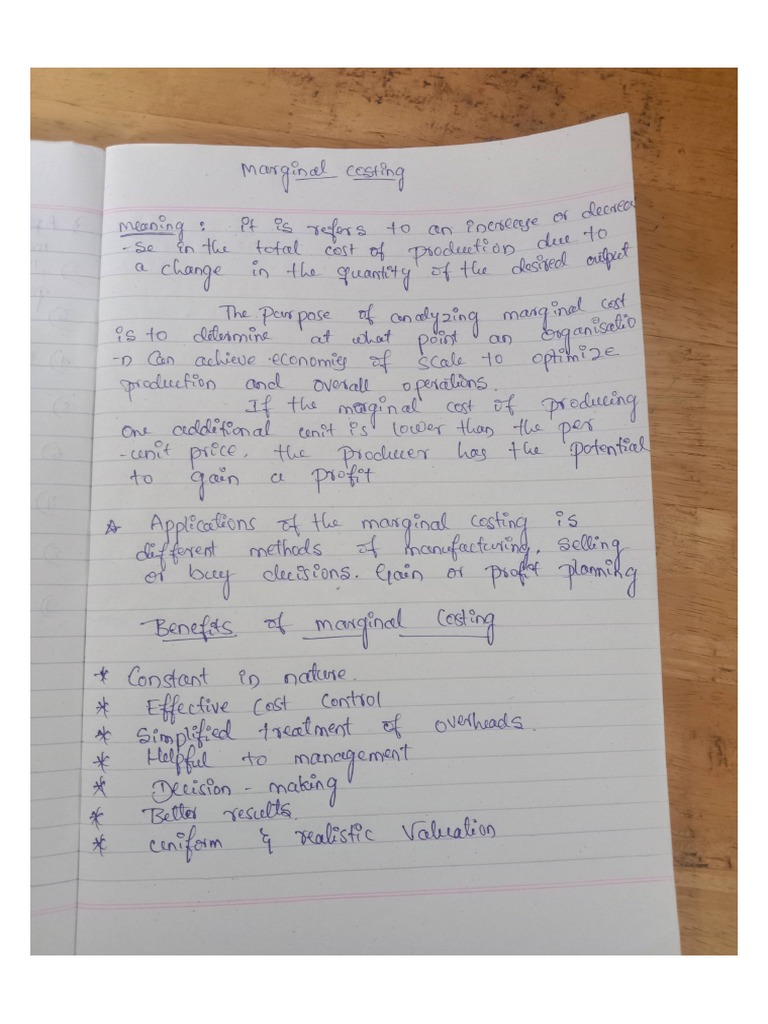 Marginal Costing
Meaning : it is refers to an increase or decrea
-se in the total cost of production due to
a change in the quantity of the desired output
The purpose of analyzing marginal cost
is to determine at what point an organisatio
-n Can achieve economies of scale to optimize
production and overall operations.
If the marginal cost of producing
one additional unit is lower than the per
-unit price, the producer has the potential
to gain a profit
Applications of the marginal costing is
different methods of manufacturing, selling
or buy decisions. Gain or profit planning
Benefits of marginal Costing
* Constant in nature.
* Effective Cost Control
* Simplified treatment of overheads.
* Helpful to management
* Decision - making
* Better results.
* Uniform & realistic Valuation